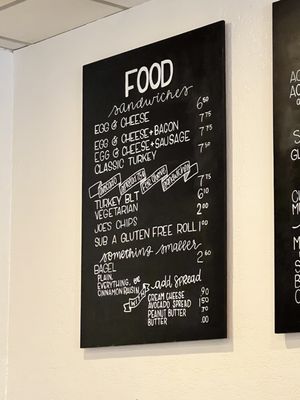 FOOD
sandwiches
EGG & CHEESE 6.50
EGG & CHEESE + BACON 7.75
EGG & CHEESE + SAUSAGE 7.75
CLASSIC TURKEY 7.50
TURKEY BLT 7.75
VEGETARIAN 6.10
JOE'S CHIPS 2.00
SUB A GLUTEN FREE ROLL 1.00
something smaller
BAGEL 2.60
PLAIN,
EVERYTHING, OR
CINNAMON RAISIN
add spread
CREAM CHEESE .90
AVOCADO SPREAD 1.50
PEANUT BUTTER .70
BUTTER .00